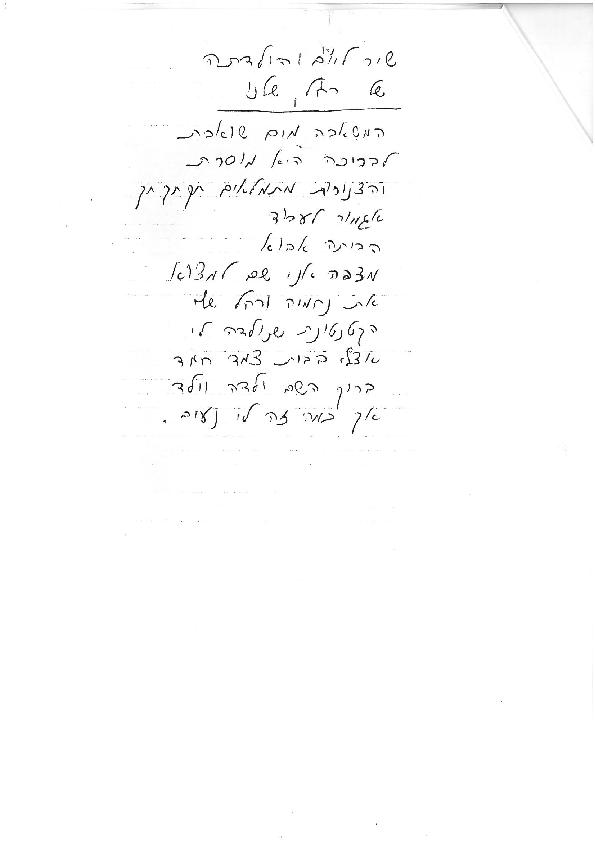 שיר ליום הולדתה
של רחל שלנו
המשאבה מים שואבת
לבריכה היא מוסרת
והצנורות מתמלאים תק תק תק
אגמור לעבוד
הביתה אבוא
מצפה אני שם למצוא
את נחמיה ורחל שלי
הקטנטינת שנולדה לי
אצלי בבית צמד חמד
ברוך השם ילדה וילד
אך כמה זה לי נעים.